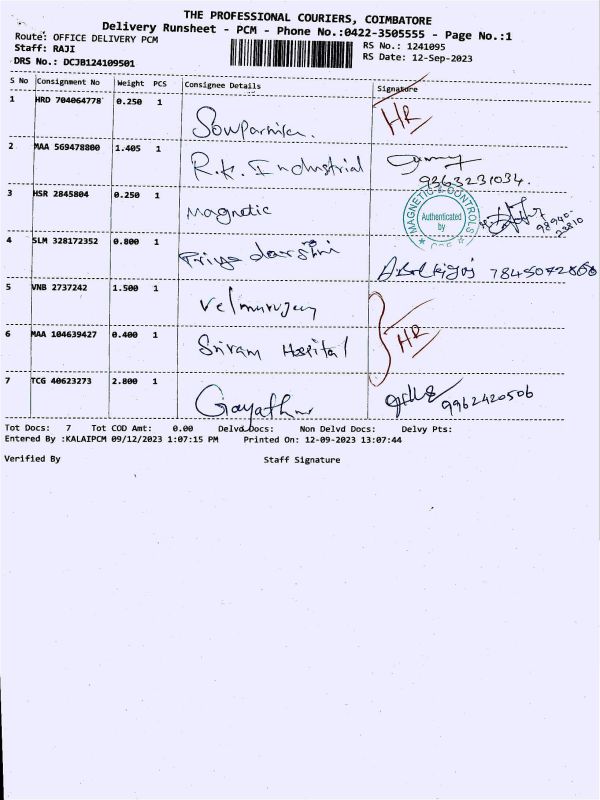 THE PROFESSIONAL COURIERS, COIMBATORE
Delivery Runsheet - PCM - Phone No.:0422-3505555 - Page No.:1
Route: OFFICE DELIVERY PCM
RS No.: 1241095
Staff: RAJI
RS Date: 12-Sep-2023
DRS No.: DCJB124109501
S No Consignment No Weight PCS Consignee Details Signature
1 HRD 704064778 0.250 1 Sowparnica. HR
2 MAA 569478800 1.405 1 R.K. Industrial 9363231034.
3 HSR 2845804 0.250 1 Magnetic MAGNETIC & CONTROLS Authenticated by 98940-23810
4 SLM 328172352 0.800 1 Priya darshni 7845042868
5 VNB 2737242 1.500 1 Velmurugan
6 MAA 104639427 0.400 1 Sriram Hospital HR
7 TCG 40623273 2.800 1 Gayathri 9962420506
Tot Docs: 7 Tot COD Amt: 0.00 Delvd Docs: Non Delvd Docs: Delvy Pts:
Entered By :KALAIPCM 09/12/2023 1:07:15 PM Printed On: 12-09-2023 13:07:44
Verified By Staff Signature